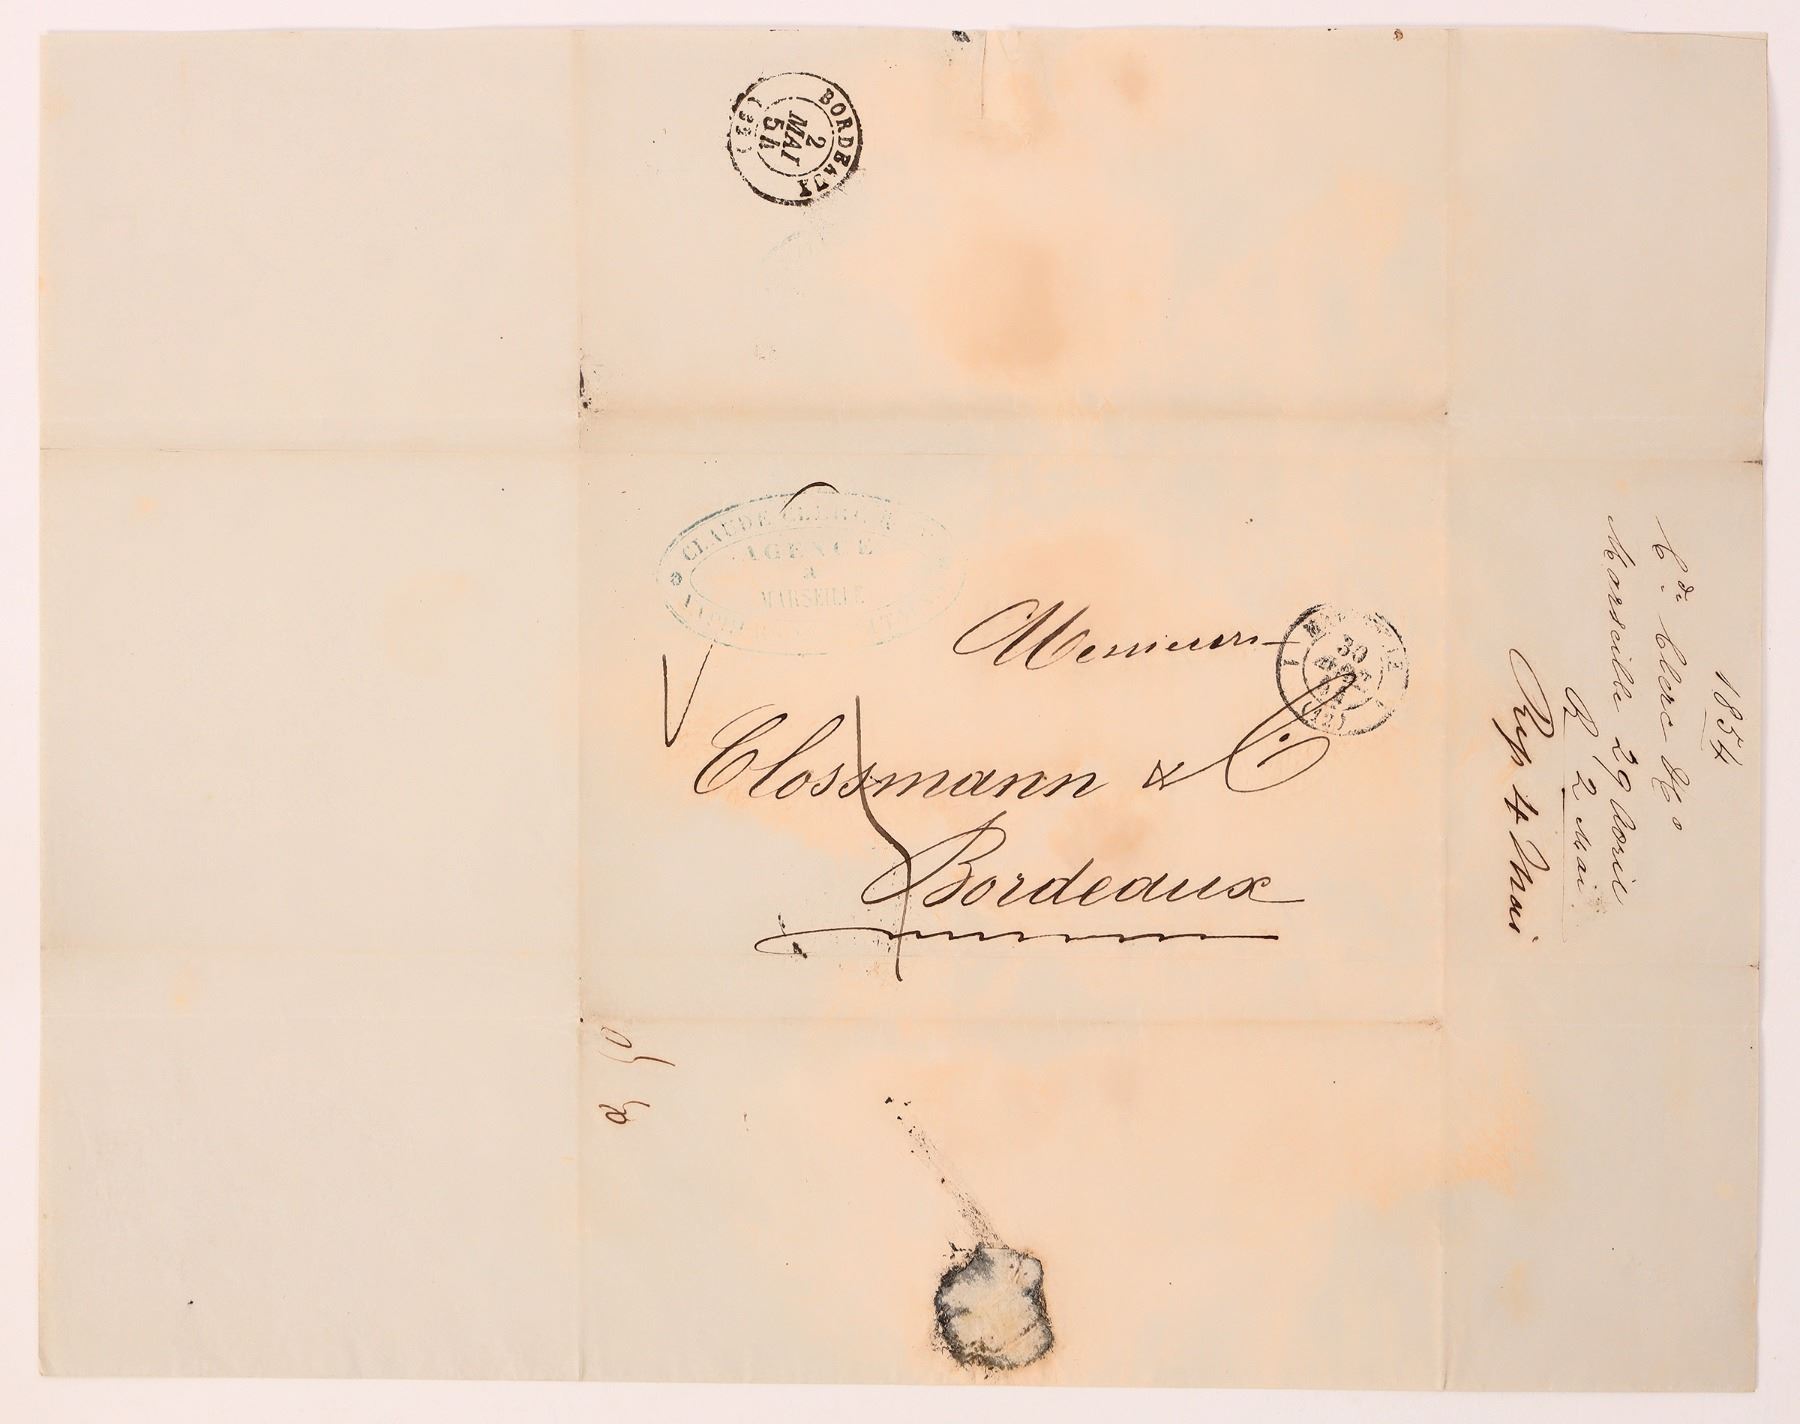 BORDEAUX
2
MAI
5 H
CLAUDE CLERC
AGENCE
à
MARSEILLE
Messieurs
Clossmann & C.
Bordeaux
30
1854
C.de Clerc &Co
Marseille 29 avril
R 2 mai
Rep 4 Mai